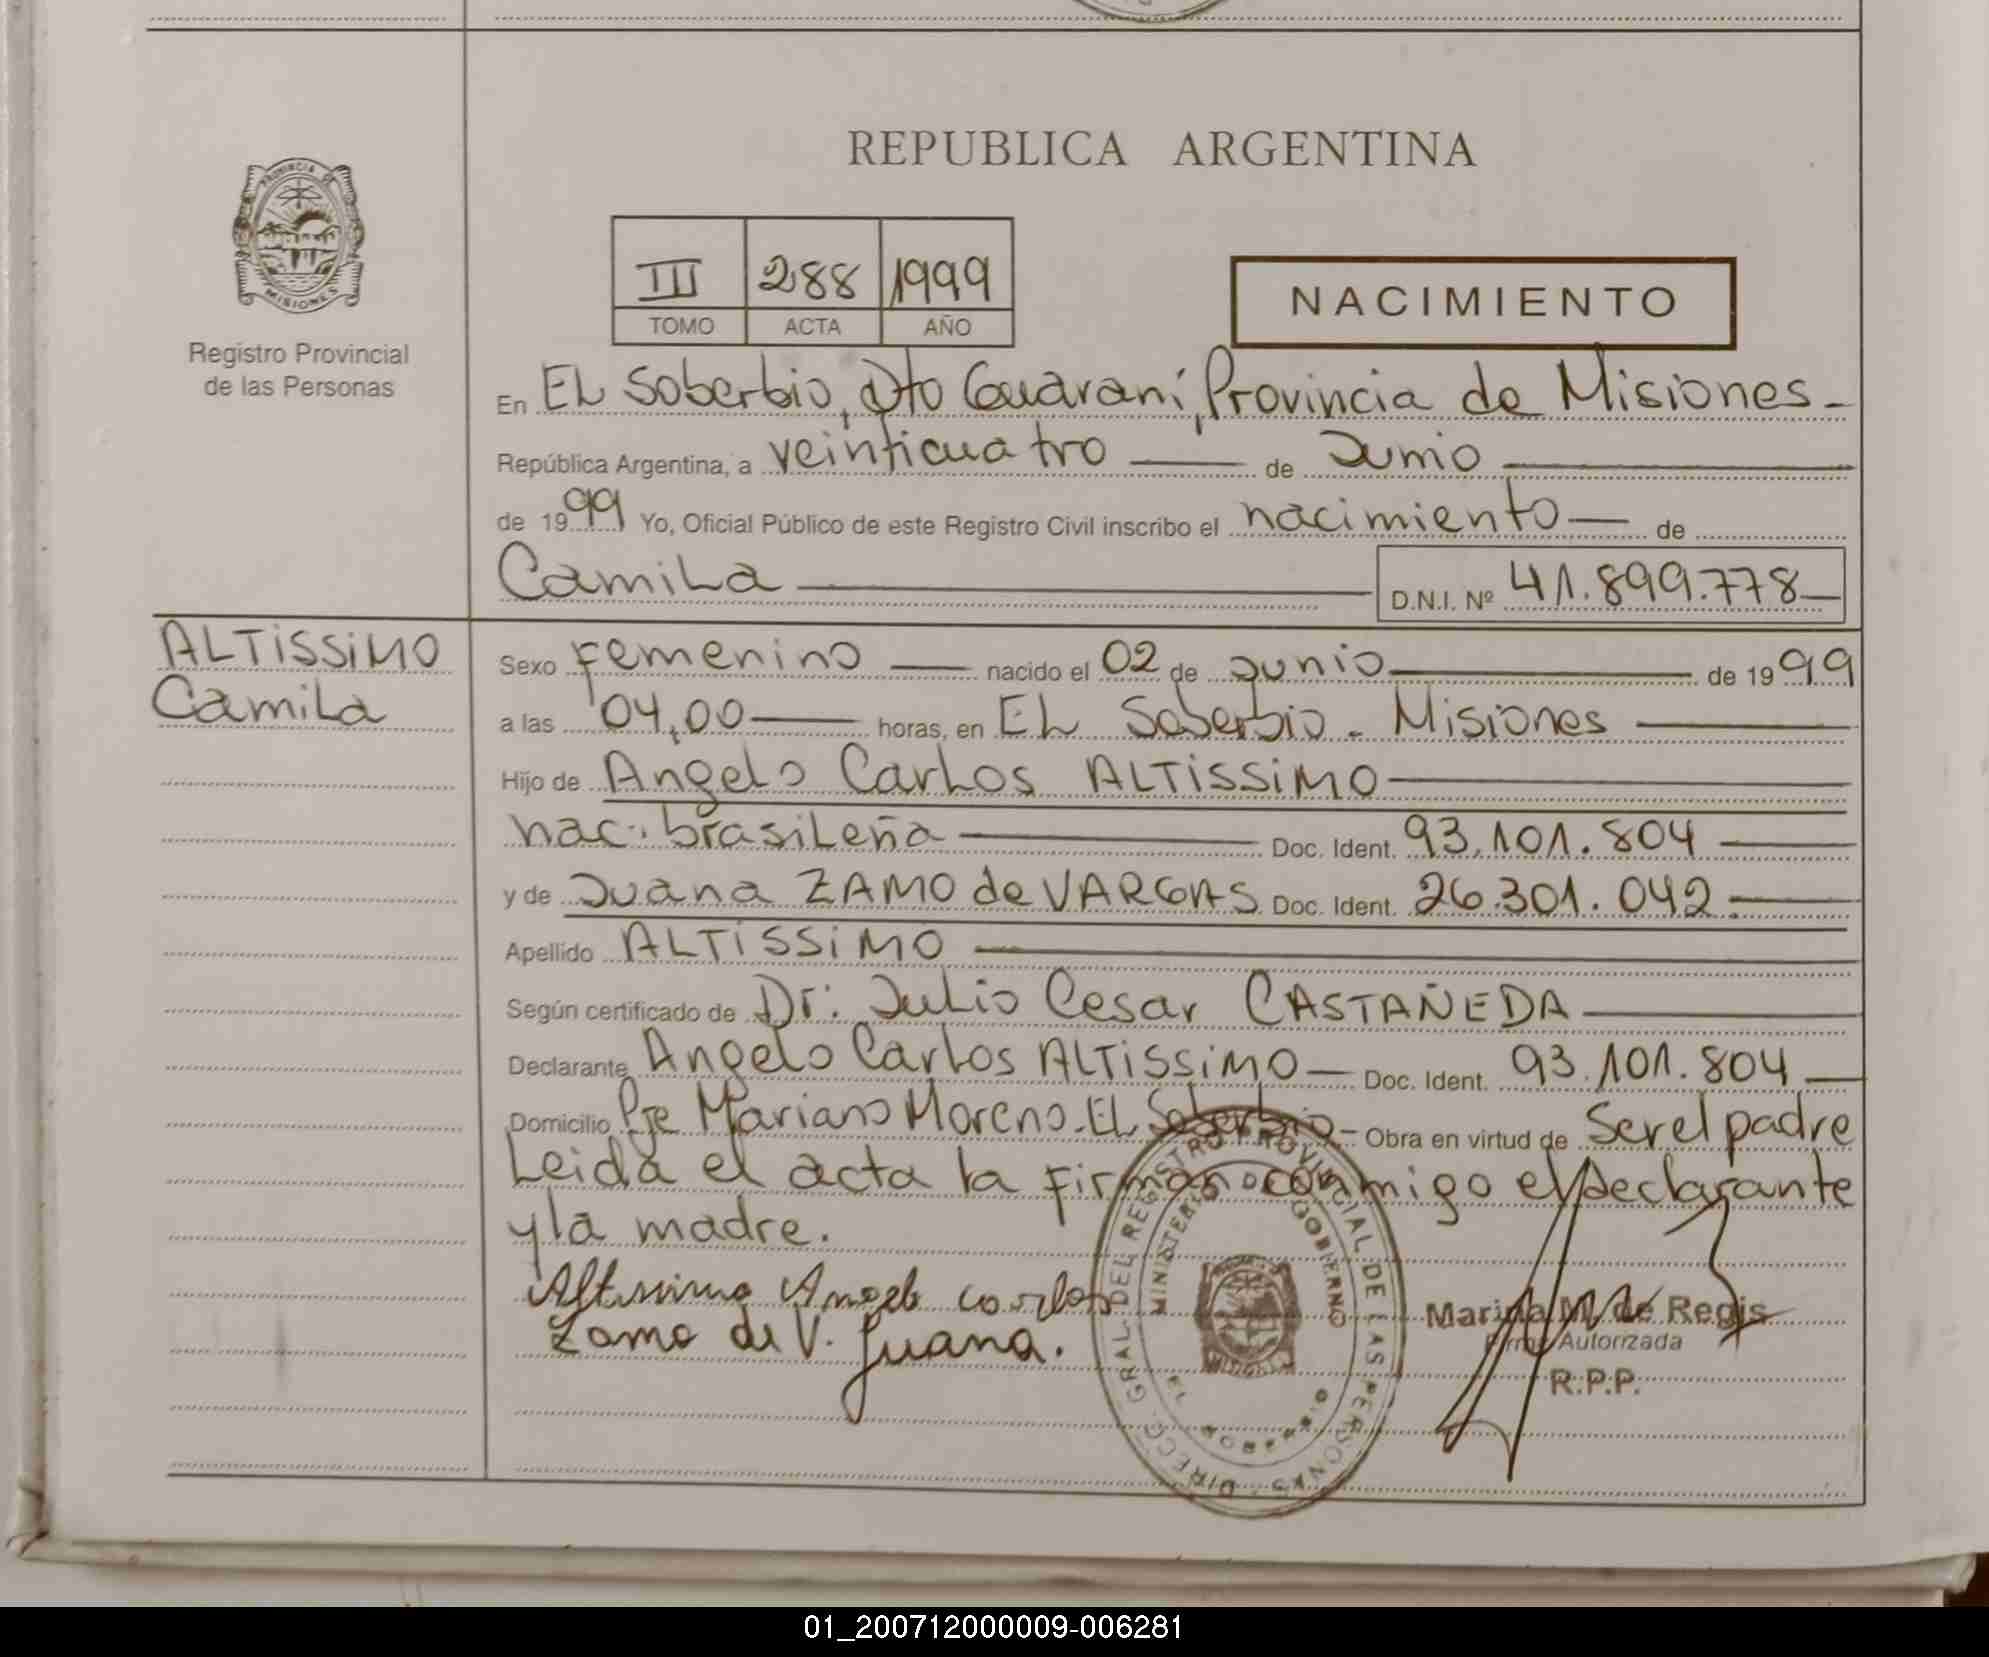 REPUBLICA ARGENTINA
PROVINCIA DE
MISIONES
Registro Provincial
de las Personas
III 288 1999
TOMO ACTA AÑO
NACIMIENTO
En EL Soberbio, Dto Guaraní, Provincia de Misiones-
República Argentina, a veinticuatro de Junio
de 1999 Yo, Oficial Público de este Registro Civil inscribo el nacimiento de
Camila D.N.I. Nº 41.899.778
ALTISSIMO
Camila
Sexo Femenino nacido el 02 de Junio de 1999
a las 04,00 horas, en EL Soberbio - Misiones
Hijo de Angelo Carlos ALTISSIMO
nac. brasileña Doc. Ident. 93.101.804
y de Juana ZAMO de VARGAS Doc. Ident. 26.301.042.
Apellido ALTISSIMO
Según certificado de Dr: Julio Cesar CASTAÑEDA
Declarante Angelo Carlos ALTISSIMO Doc. Ident. 93.101.804
Domicilio Pje Mariano Moreno - EL Soberbio - Obra en virtud de Ser el padre
Leida el acta la firman conmigo el declarante
y la madre.
Altissimo Angelo Carlos
Zamo de V. Juana.
DIRECC. GRAL. DEL REGISTRO PROVINCIAL DE LAS PERSONAS
MINISTERIO GOBIERNO
SOBERBIO
Marina M. de Regis
Firma Autorizada
R.P.P.
01_200712000009-006281